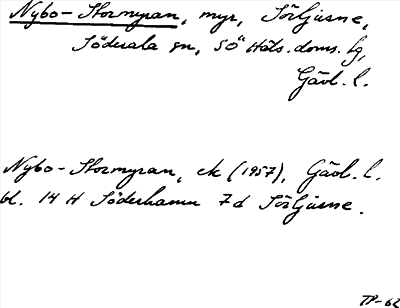 Nybo-Stormyran, myr, Sörljusne,
Söderala sn, SÖ Häls. doms. lg,
Gävl. l.
Nybo-Stormyran, ek (1957), Gävl. l.
bl. 14 H Söderhamn 7d Sörljusne.
TP-62